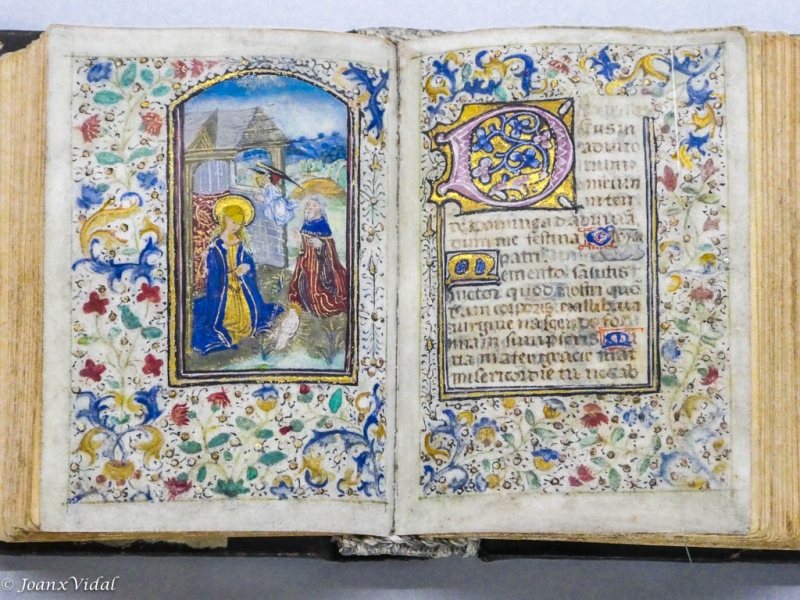 Deus in
adiuto
rium
de Domine ad adiuua
dum me festina
patri
Memento salutis
auctor quod nostri quo
dam corporis ex illibata
uirgine nascendo for
mam sumpseris M
ria mater gracie mat
misericordie tu nos ab
© JoanxVidal